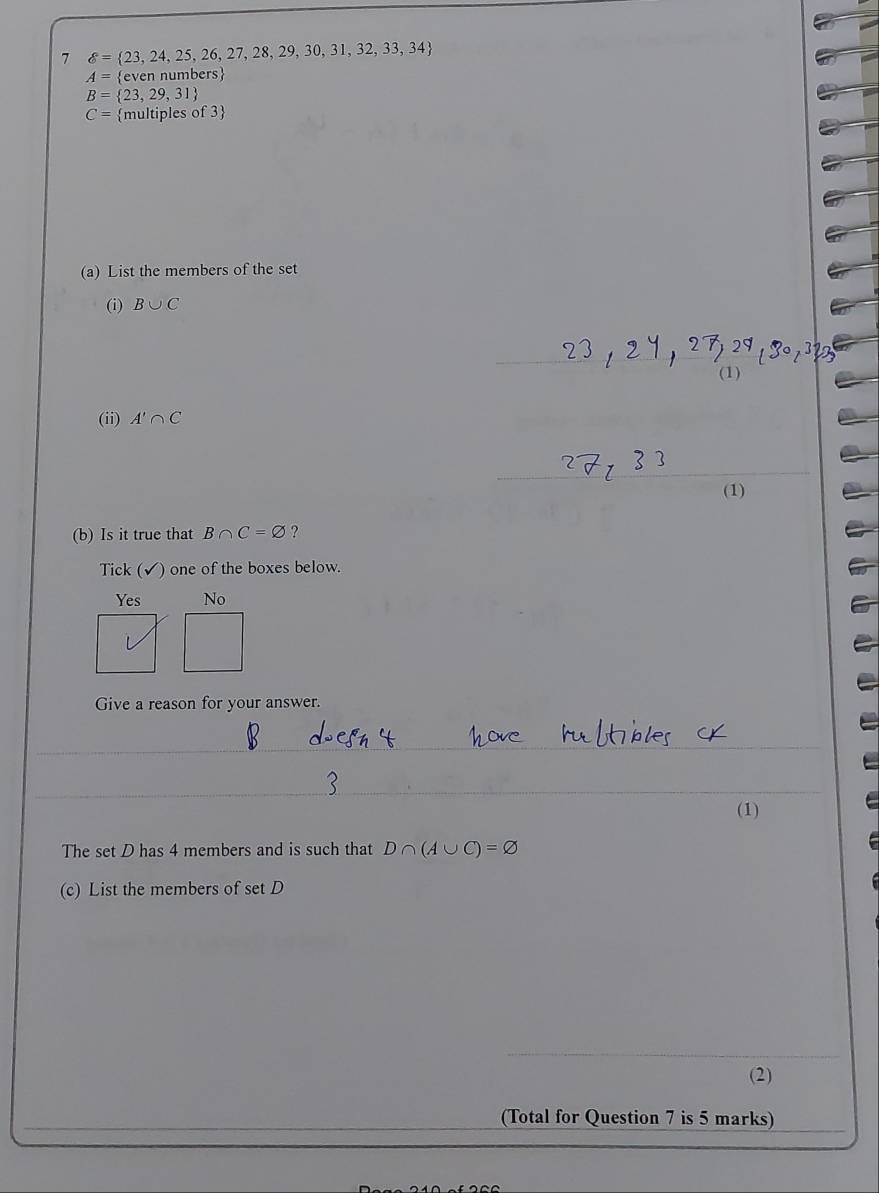 7 ℰ = {23, 24, 25, 26, 27, 28, 29, 30, 31, 32, 33, 34}
A = {even numbers}
B = {23, 29, 31}
C = {multiples of 3}
(a) List the members of the set
(i) B ∪ C
23, 24, 27, 29, 30, 31, 33
(1)
(ii) A′ ∩ C
27, 33
(1)
(b) Is it true that B ∩ C = ∅ ?
Tick (✓) one of the boxes below.
Yes No
✓
Give a reason for your answer.
B doesn't have multiples of
3
(1)
The set D has 4 members and is such that D ∩ (A ∪ C) = ∅
(c) List the members of set D
(2)
(Total for Question 7 is 5 marks)
Page 210 of 266